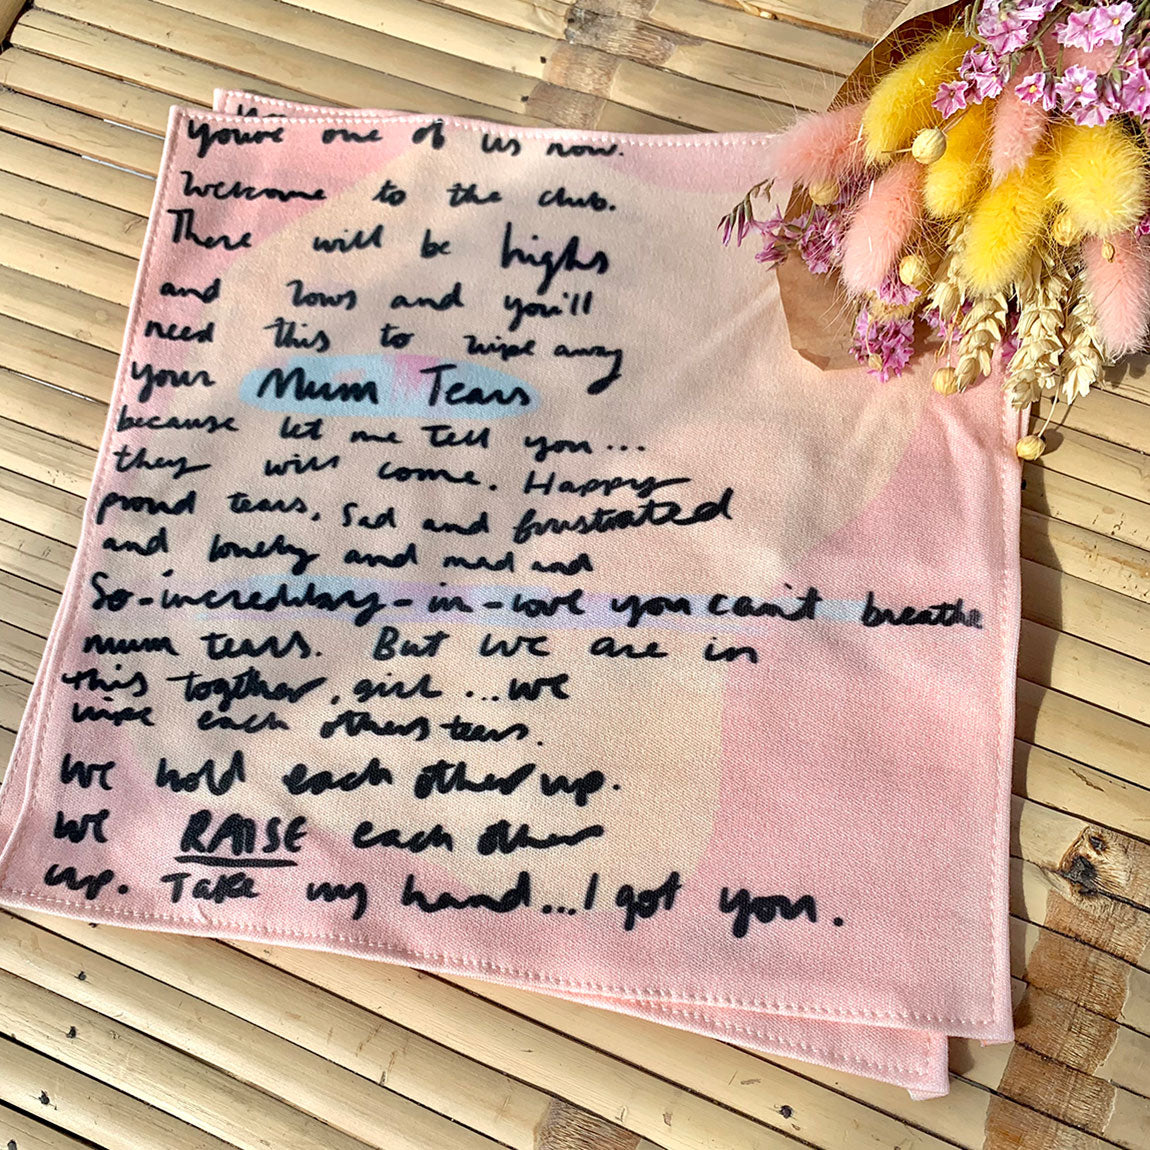 you're one of us now.
Welcome to the club.
There will be highs
and lows and you'll
need this to wipe away
your Mum Tears
because let me tell you...
they will come. Happy
proud tears, sad and frustrated
and lonely and mad and
So-incredibly-in-love you can't breathe
mum tears. But we are in
this together, girl ...we
wipe each others tears.
We hold each other up.
We RAISE each other
up. Take my hand...I got you.